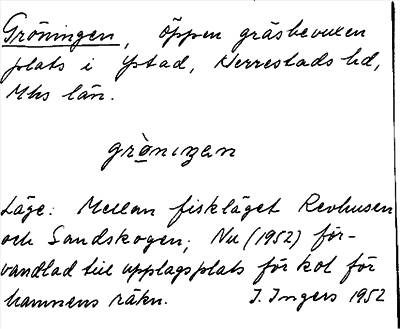 Gröningen, öppen gräsbevuxen
plats i Ystad, Herrestads hd,
Mhs län.
grò̱nıŋen
Läge: Mellan fiskläget Revhusen
och Sandskogen; Nu (1952) för-
vandlad till upplagsplats för kol för
hamnens räkn. I. Ingers 1952